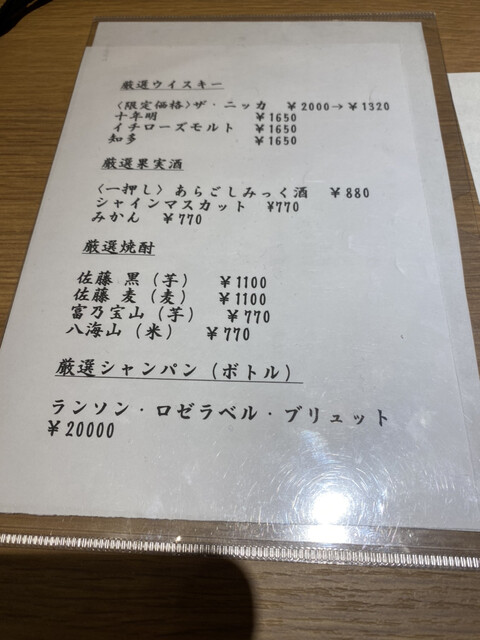 厳選ウイスキー
〈限定価格〉ザ・ニッカ ¥2000→¥1320
十年明 ¥1650
イチローズモルト ¥1650
知多 ¥1650
厳選果実酒
〈一押し〉あらごしみっく酒 ¥880
シャインマスカット ¥770
みかん ¥770
厳選焼酎
佐藤 黒(芋) ¥1100
佐藤 麦(麦) ¥1100
富乃宝山(芋) ¥770
八海山(米) ¥770
厳選シャンパン(ボトル)
ランソン・ロゼラベル・ブリュット
¥20000